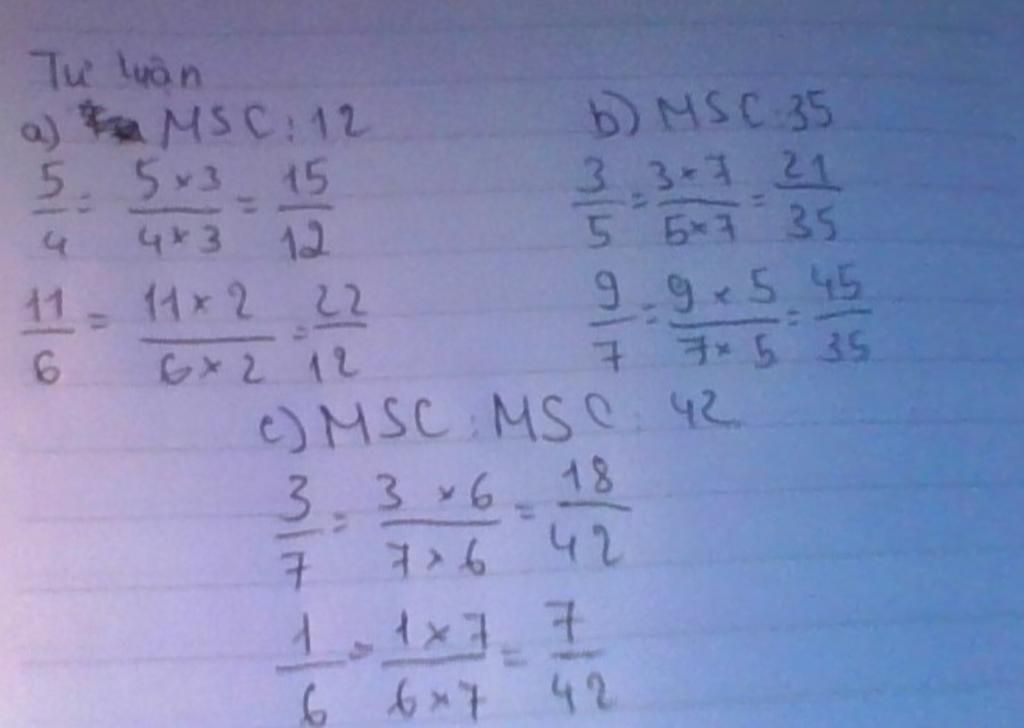 Tự luận
a) MSC: 12
5/4 = 5 × 3 / 4 × 3 = 15/12
11/6 = 11 × 2 / 6 × 2 = 22/12
b) MSC: 35
3/5 = 3 × 7 / 5 × 7 = 21/35
9/7 = 9 × 5 / 7 × 5 = 45/35
c) MSC: MSC: 42
3/7 = 3 × 6 / 7 × 6 = 18/42
1/6 = 1 × 7 / 6 × 7 = 7/42